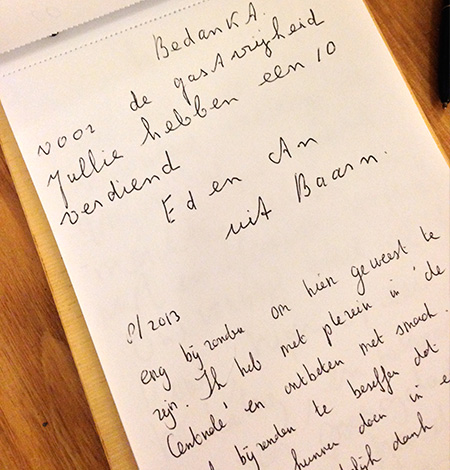 Bedankt
voor de gastvrijheid
Jullie hebben een 10
verdiend
Ed en An
uit Baarn.
/2013
bijzonder om hier geweest te
zijn. Ik heb met plezier in 'de
Centrale' en ontbeten met smaak.
bijzonder te beseffen dat
kunnen doen in e
dank